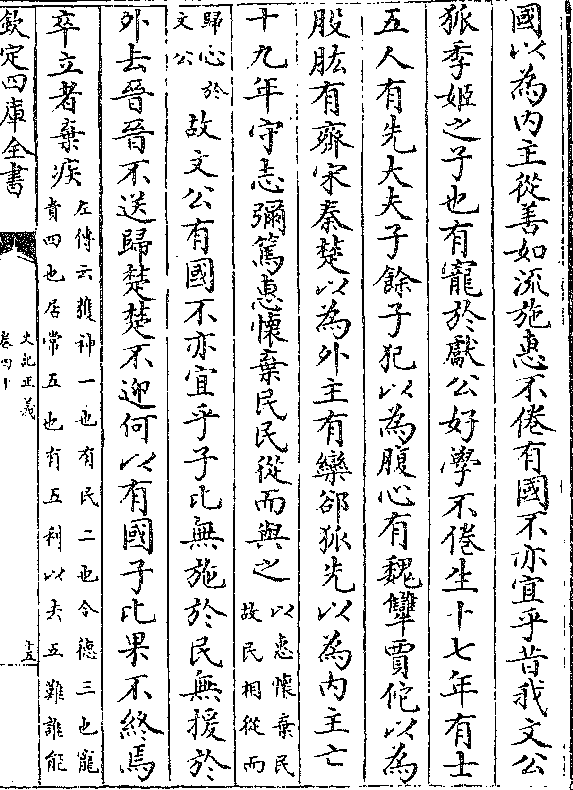 國以為內主從善如流施惠不倦有國不亦宜乎昔我文公
狐季姬之子也有寵於獻公好學不倦生十七年有士
五人有先大夫子餘子犯以為腹心有魏犫賈佗以為
股肱有齊宋秦楚以為外主有欒郤狐先以為內主亡
十九年守志彌篤惠懷棄民民從而與之以惠懷棄民故民相從而
歸心於文公故文公有國不亦宜乎子比無施於民無援於
外去晉晉不送歸楚楚不迎何以有國子比果不終焉
卒立者棄疾左傳云獲神一也有民二也令德三也寵貴四也居常五也有五利以去五難誰能
欽定四庫全書
史記正義
卷四十
十五